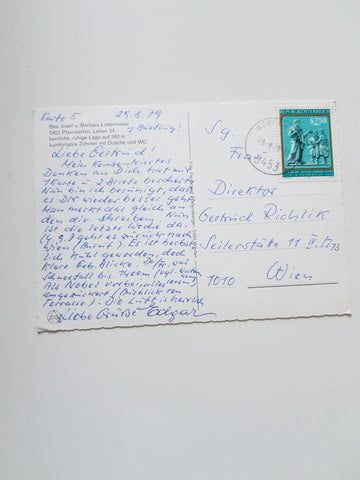 Bes. Josef u. Barbara Lottermoser
5452 Pfarrwerfen, Lehen 24
herrliche, ruhige Lage auf 960 m
komfortable Zimmer mit Dusche und WC
Karte 5 29.8.79
Liebe Gertrud!
Mein konzentriertes
Denken an Dich hat mir
1 Karte u. 2 Briefe beschert.
Nun bin ich beruhigt, daß
es Dir wieder besser geht.
Man merkt das gleich an
dem Schreiben. Nun
ist die letzte Woche da,
4.9.) geht es zurück nach
Wien (Anruf). Es ist herbst-
lich kühl geworden, doch
klare Geb. Blicke. Dafür war
Schneefall bis 1400m
Als Nebel vorbeiwallen
angezuckert (Ausblick von
Terrasse). Die Luft ist herrlich
Liebe Grüße Edgar
REPUBLIK ÖSTERREICH
S 2.50
5453
S.g.
Frau
Direktor
Gertrud Richlik
Seilerstätte 11
1010 Wien